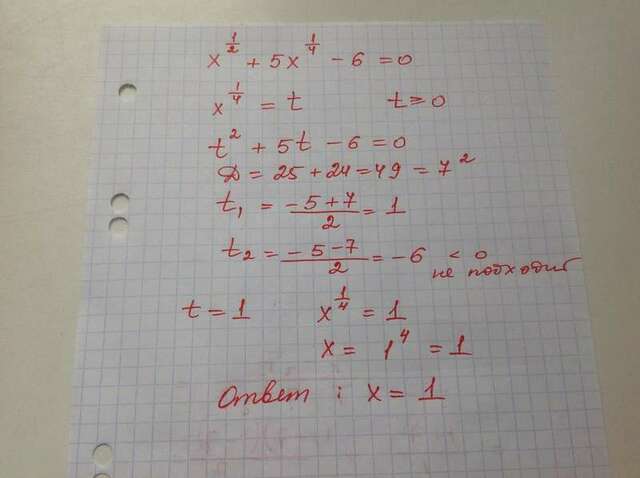 x^(1/2) + 5x^(1/4) - 6 = 0
x^(1/4) = t t ≥ 0
t² + 5t - 6 = 0
D = 25 + 24 = 49 = 7²
t₁ = (-5+7)/2 = 1
t₂ = (-5-7)/2 = -6 < 0
не подходит
t = 1 x^(1/4) = 1
x = 1⁴ = 1
Ответ : x = 1